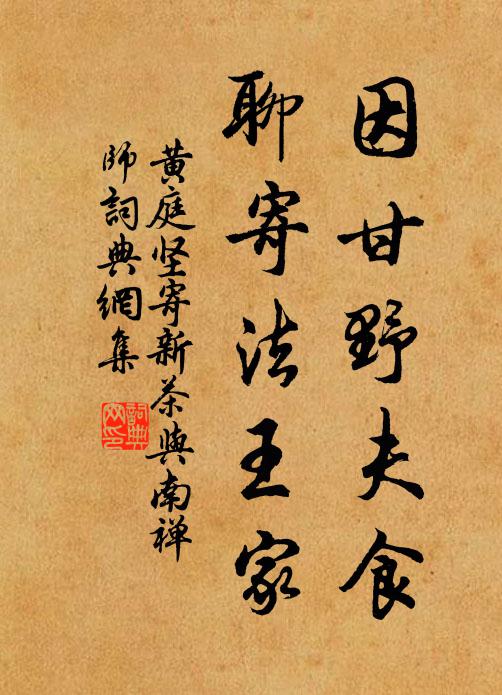 因甘野夫食
聊寄法王家
黄庭坚寄新茶與南禅
師詞典網集
詞典
网印